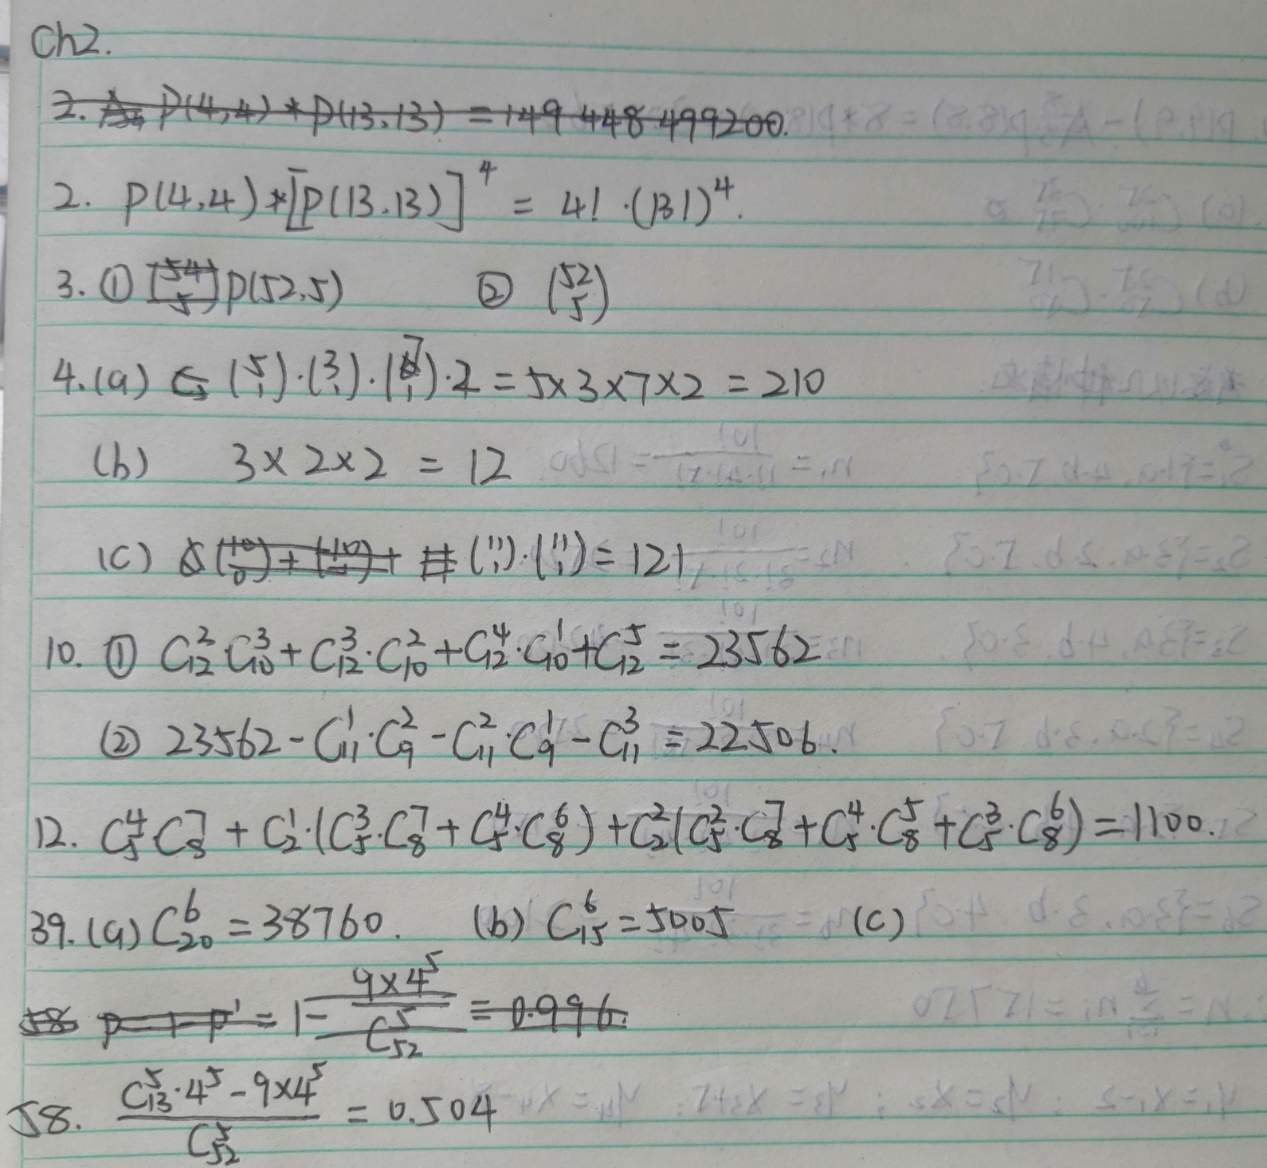 Ch2.
2. P(4,4)*P(13,13) = 149 448 499200.
2. P(4,4)*[P(13.13)]⁴ = 4! ·(13!)⁴.
3. ① (54 5) P(52,5) ② (52 5)
4.(a) (5 1)·(3 1)·(7 1)·2 = 5×3×7×2 = 210
(b) 3×2×2 = 12
(c) (10 0)+ (11 1)·(11 1) = 121
10. ① C₁₂² C₁₀³ + C₁₂³·C₁₀² + C₁₂⁴·C₁₀¹ + C₁₂⁵ = 23562
② 23562 - C₁₁¹·C₉² - C₁₁²·C₉¹ - C₁₁³ = 22506.
12. C₅⁴ C₈⁷ + C₂¹·(C₅³·C₈⁷ + C₅⁴·C₈⁶) + C₂²(C₅²·C₈⁷ + C₅⁴·C₈⁵ + C₅³·C₈⁶) = 1100.
39.(a) C₂₀⁶ = 38760. (b) C₁₅⁶ = 5005 (c)
58 p = 1-p' = 1 - 9×4⁵ / C₅₂⁵ = 0.996.
58. C₁₃⁵·4⁵ - 9×4⁵ / C₅₂⁵ = 0.504